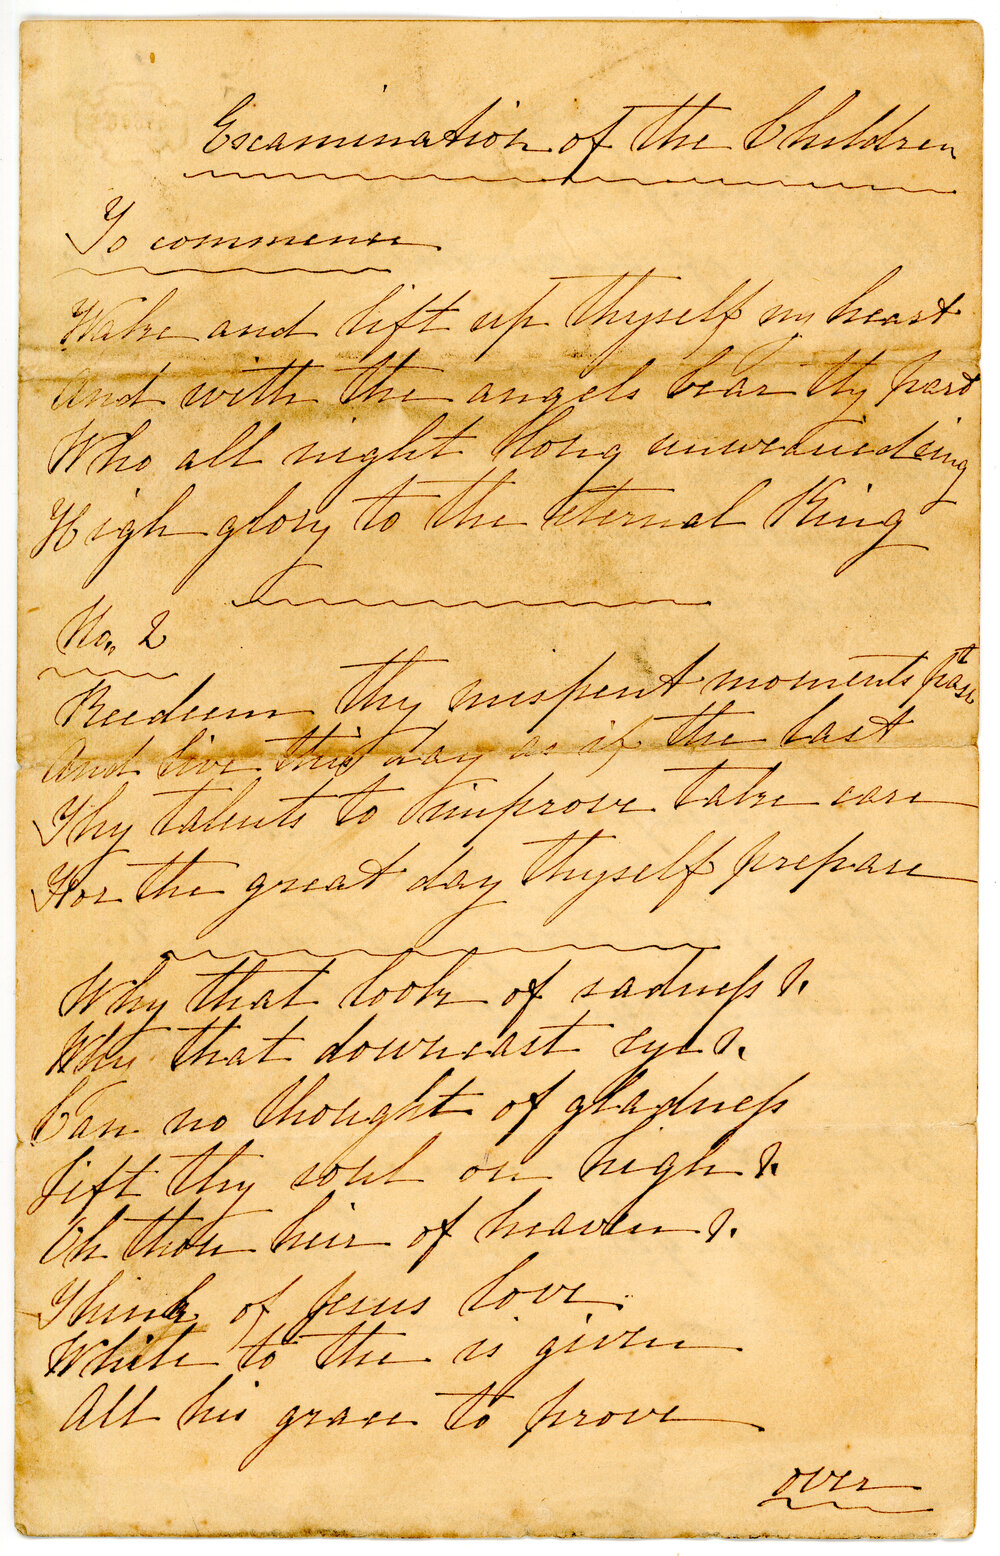 Examination of the Children
To commence
Wake and lift up thyself my heart
And with the angels bear thy part
Who all night long unwearied sing
High glory to the eternal King
No. 2
Redeem thy mispent moments past
And live this day as if the last
Thy talents to improve take care
For the great day thyself prepare
Why that look of sadness?
Why that downcast eye?
Can no thought of gladness
Lift thy soul on high?
Oh thou heir of heaven?
Think of Jesus love
While to the is given
All his grace to prove
over